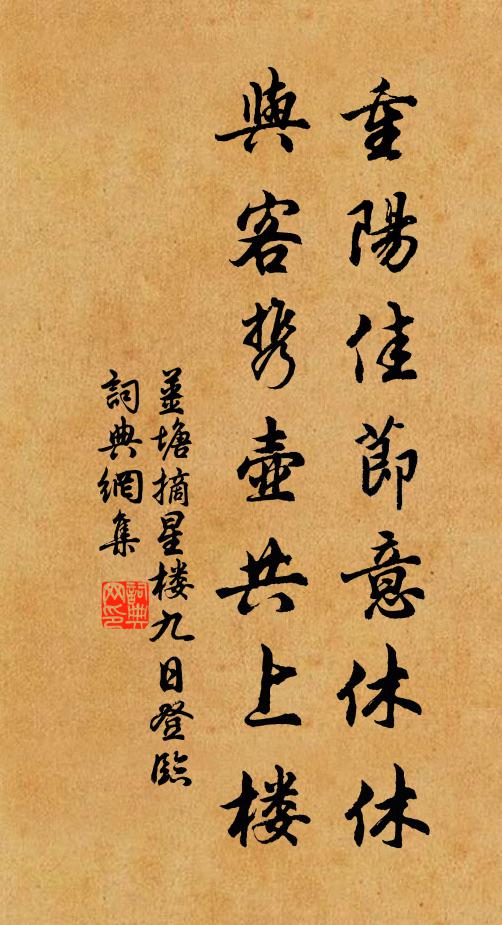 重陽佳節意休休
與客携壺共上楼
姜塘摘星楼九日登臨
詞典網集
詞典网印